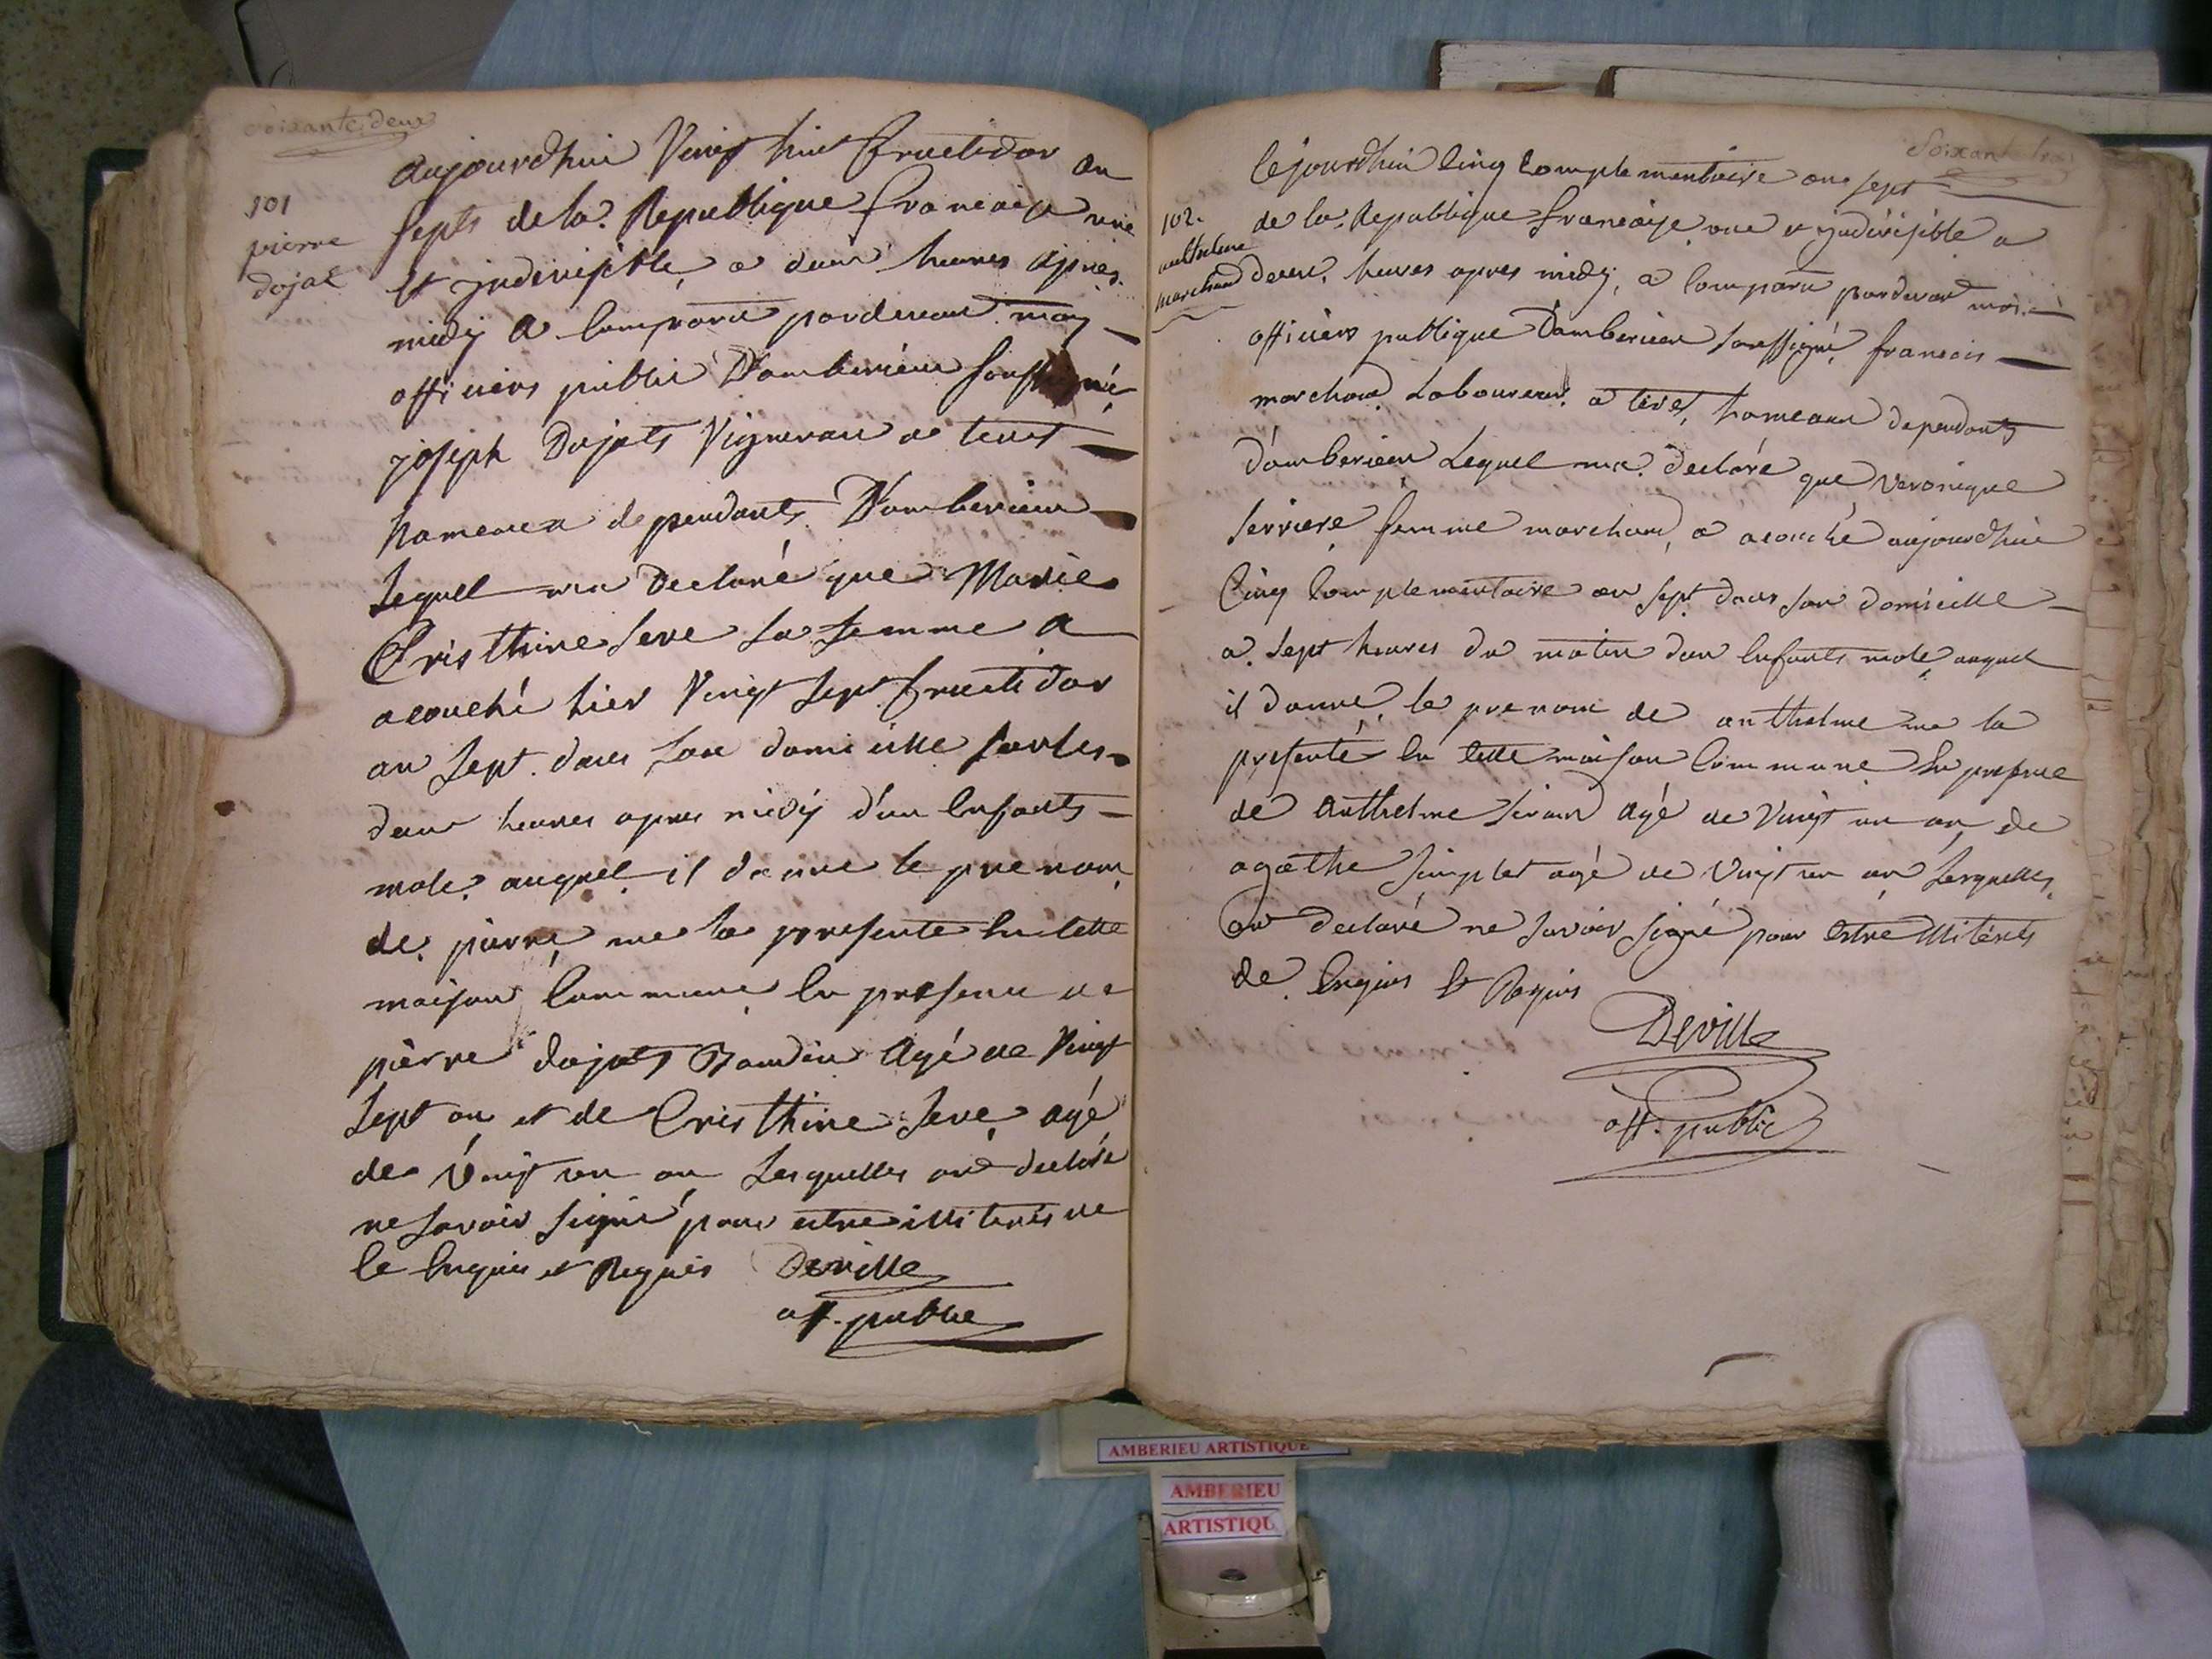 soixante deux
101
pierre
dojat
aujourdhui Vingt huit fructidor an
septs de la Republique francaise une
et jndivisible, a deux heures apres
midy a Comparu pardevant moy
officiers public D'amberieux soussigné
joseph Dojats Vigneron de
hameaux dependants D'amberieux
Lequell ma Declaré que Marie
Cristhine seve sa femme a
acouché hier Vingt sept fructidor
an sept dans son domicille sur les
deux heures apres midy d'un Enfants
male auquel il donne le prenom
de pierre, me la presente En Cette
maison Commune En presence de
pierre dojats Agé de Vingt
sept an et de Cristhine seve agé
de Vingt un an Lesquelles ont declaré
ne savoir signé pour estre illiterés de
Ce Enquis et Requis Deville
off. public
soixante trois
102.
anthelme
marchand
Cejourdhui Cinq Complementaire an sept
de la Republique francaise une et jndivisible a
deux heures apres midy, a Comparu pardevant moi
officiers publique D'amberieux soussigné francois
marchand Laboureur a tiret, hameaux dependants
d'amberieux Lequel ma declaré que Veronique
serriere femme marchand, a acouché aujourdhui
Cinq Complementaire an sept dans son domicille
a sept heures du matin dun Enfants male auquel
il donne le prenom de anthelme me la
presenté En Cette maison Commune En presence
de Anthelme agé de Vingt un an de
agathe simplet agé de Vingt un an Lesquelles
ont declaré ne savoir signé pour Estre illiterés
de Enquis Et Requis
Deville
off. public
AMBERIEU ARTISTIQUE
AMBERIEU
ARTISTIQU